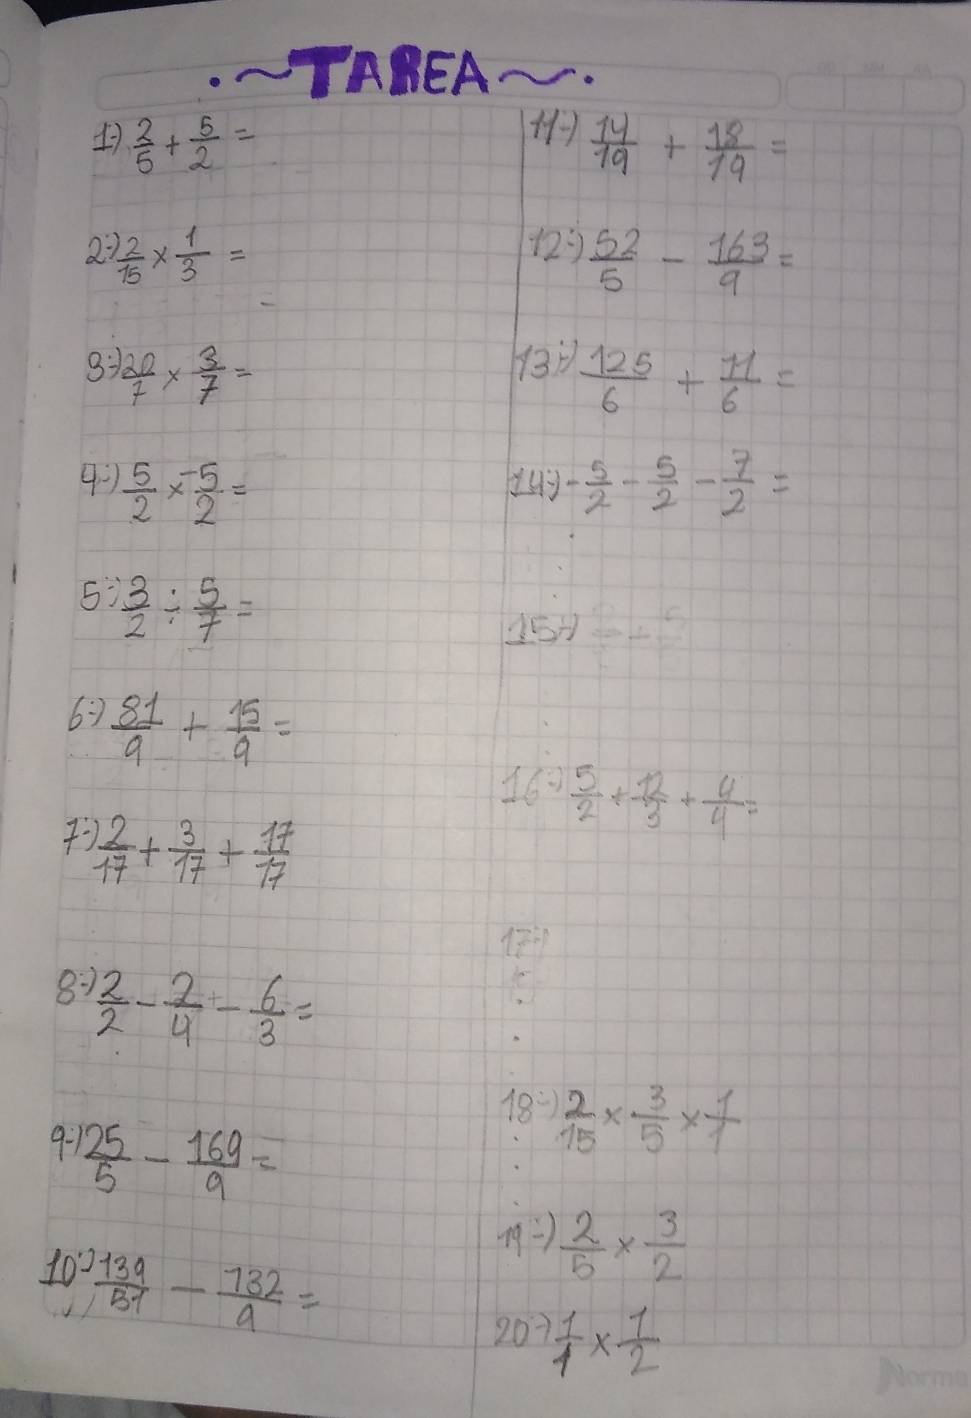 TAREA
1-) 2/5 + 5/2 =
2-) 2/15 × 1/3 =
3-) 20/7 × 3/7 =
4-) 5/2 × -5/2 =
5-) 3/2 ÷ 5/7 =
6-) 81/9 + 15/9 =
7-) 2/17 + 3/17 + 17/17
8-) 2/2 - 2/4 - 6/3 =
9-) 25/5 - 169/9 =
10-) 139/51 - 132/9 =
11-) 14/19 + 18/19 =
12-) 52/5 - 163/9 =
13-) 125/6 + 11/6 =
14-) - 5/2 - 5/2 - 7/2 =
15-)
16-) 5/2 + 12/3 + 4/4 =
17-)
18-) 2/15 × 3/5 × 1/1
19-) 2/5 × 3/2
20-) 1/1 × 1/2
Norma